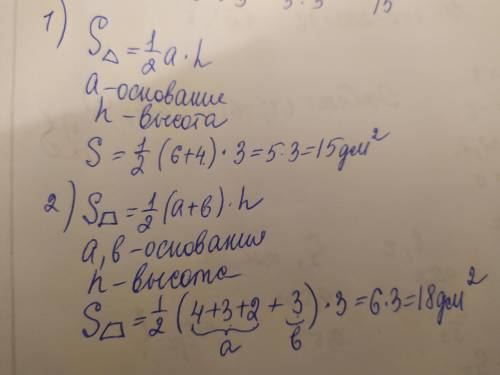 1)
S△ = 1/2 a · h
a - основание
h - высота
S = 1/2 (6+4) · 3 = 5 · 3 = 15 дм²
2) S⏢ = 1/2 (a+в) · h
a, в - основания
h - высота
S⏢ = 1/2 (4+3+2 + 3) · 3 = 6 · 3 = 18 дм²
a в